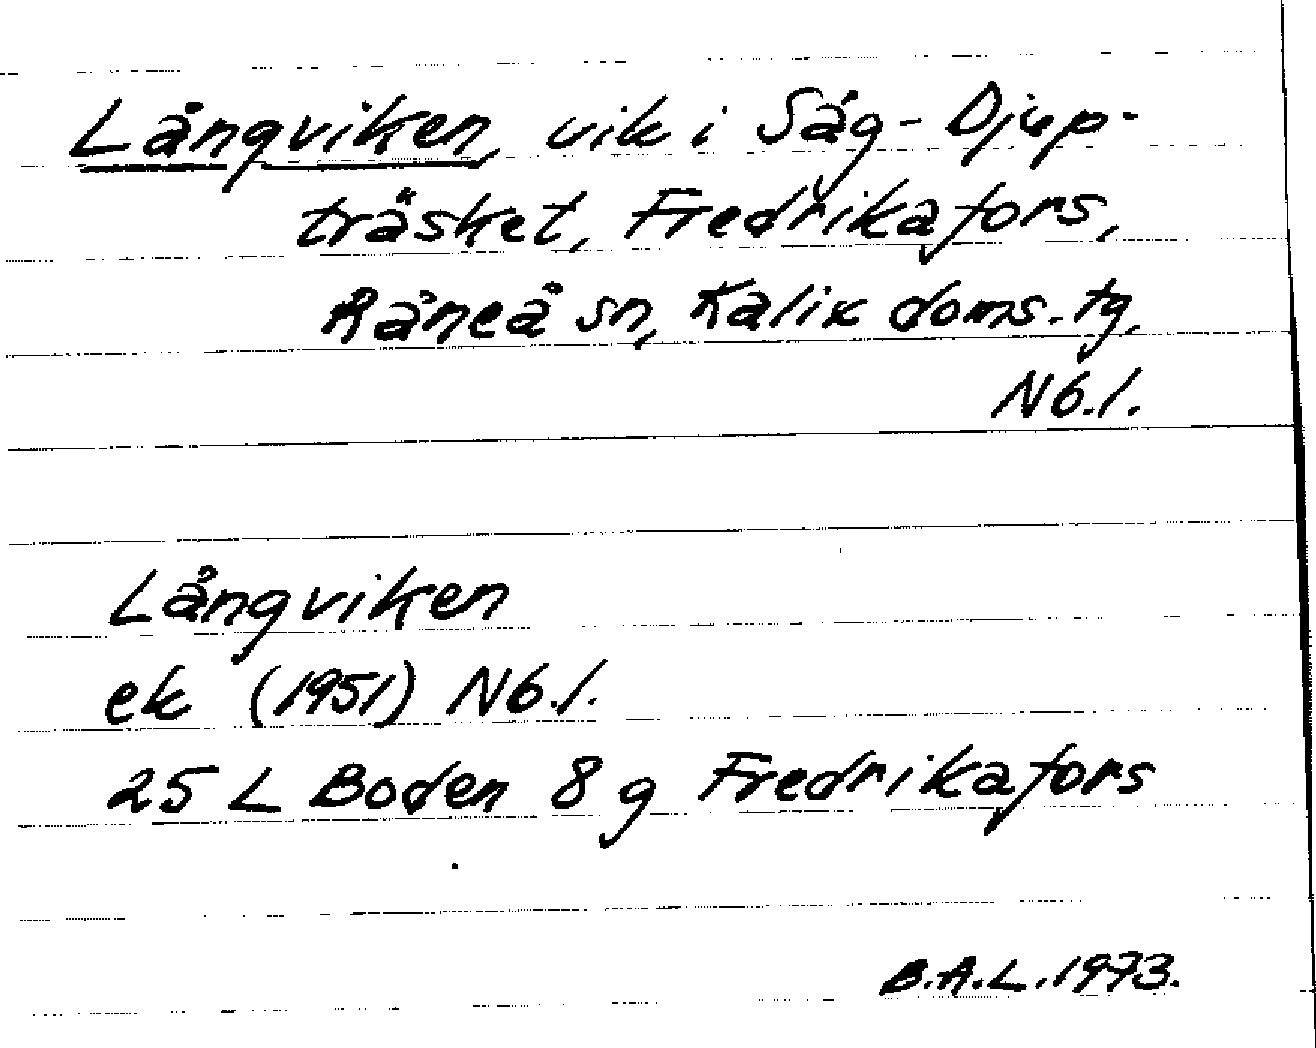 Långviken, vik i Såg-Djup-
träsket, Fredrikafors,
Råneå sn, Kalix doms. tg.
Nb.l.
Långviken
ek (1951) Nb.l.
25 L Boden 8 g Fredrikafors
B.A.L. 1973.